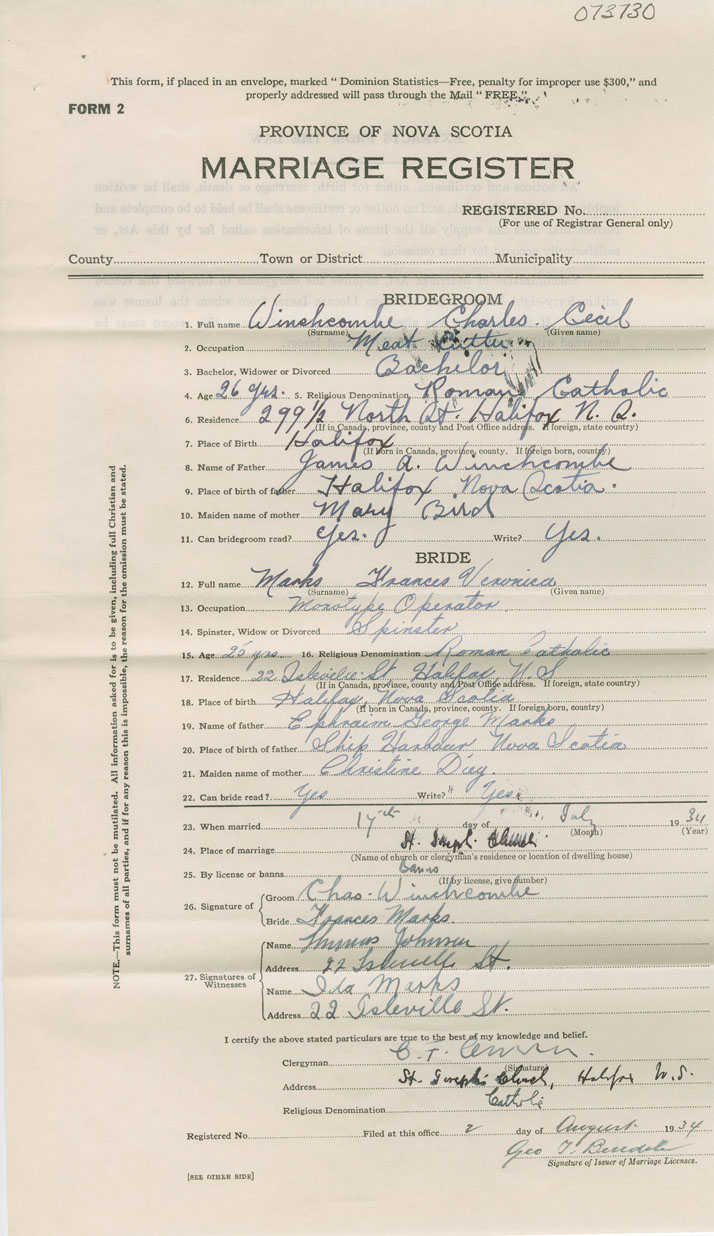 073730
This form, if placed in an envelope, marked “ Dominion Statistics—Free, penalty for improper use $300,” and
properly addressed will pass through the Mail “ FREE.”
FORM 2
PROVINCE OF NOVA SCOTIA
MARRIAGE REGISTER
REGISTERED No.
(For use of Registrar General only)
County Town or District Municipality
BRIDEGROOM
1. Full name Winchcombe Charles Cecil
(Surname) (Given name)
2. Occupation Meat Cutter
3. Bachelor, Widower or Divorced Bachelor
4. Age 26 yrs. 5. Religious Denomination Roman Catholic
6. Residence 299 1/2 North St. Halifax N. S.
(If in Canada, province, county and Post Office address. If foreign, state country)
7. Place of Birth Halifax
(If born in Canada, province, county. If foreign born, country)
8. Name of Father James A. Winchcombe
9. Place of birth of father Halifax Nova Scotia.
10. Maiden name of mother Mary Bird
11. Can bridegroom read? Yes. Write? Yes.
BRIDE
12. Full name Marks Frances Veronica
(Surname) (Given name)
13. Occupation Monotype Operator
14. Spinster, Widow or Divorced Spinster
15. Age 25 yrs. 16. Religious Denomination Roman Catholic
17. Residence 22 Isleville St. Halifax, N. S
(If in Canada, province, county and Post Office address. If foreign, state country)
18. Place of birth Halifax, Nova Scotia
(If born in Canada, province, county. If foreign born, country)
19. Name of father Ephraim George Marks
20. Place of birth of father Ship Harbour Nova Scotia
21. Maiden name of mother Christine Day
22. Can bride read? Yes Write? Yes
23. When married 17th day of July 1934
(Month) (Year)
24. Place of marriage St. Joseph's Church
(Name of church or clergyman's residence or location of dwelling house)
25. By license or banns Banns
(If by license, give number)
26. Signature of Groom Chas. Winchcombe
Bride Frances Marks
27. Signatures of Witnesses
Name Johnson
Address 22 Isleville St.
Name Ida Marks
Address 22 Isleville St.
I certify the above stated particulars are true to the best of my knowledge and belief.
Clergyman C. F.
(Signature)
Address St. Joseph's Church, Halifax N.S.
Religious Denomination Catholic
Registered No. Filed at this office 2 day of August 1934
Geo T.
Signature of Issuer of Marriage Licenses.
[SEE OTHER SIDE]
NOTE.—This form must not be mutilated. All information asked for is to be given, including full Christian and
surnames of all parties, and if for any reason this is impossible, the reason for the omission must be stated.